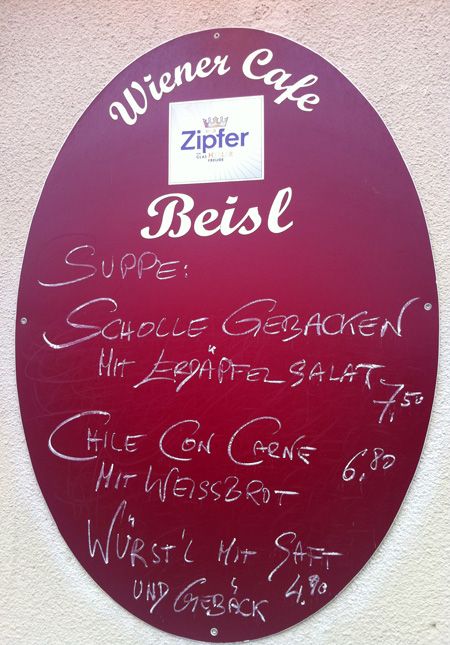 Wiener Cafe
Zipfer
Beisl
SUPPE:
SCHOLLE GEBACKEN
MIT ERDÄPFELSALAT
7,50
CHILE CON CARNE
6,80
MIT WEISSBROT
WÜRST'L MIT SAFT
UND GEBÄCK 4,90